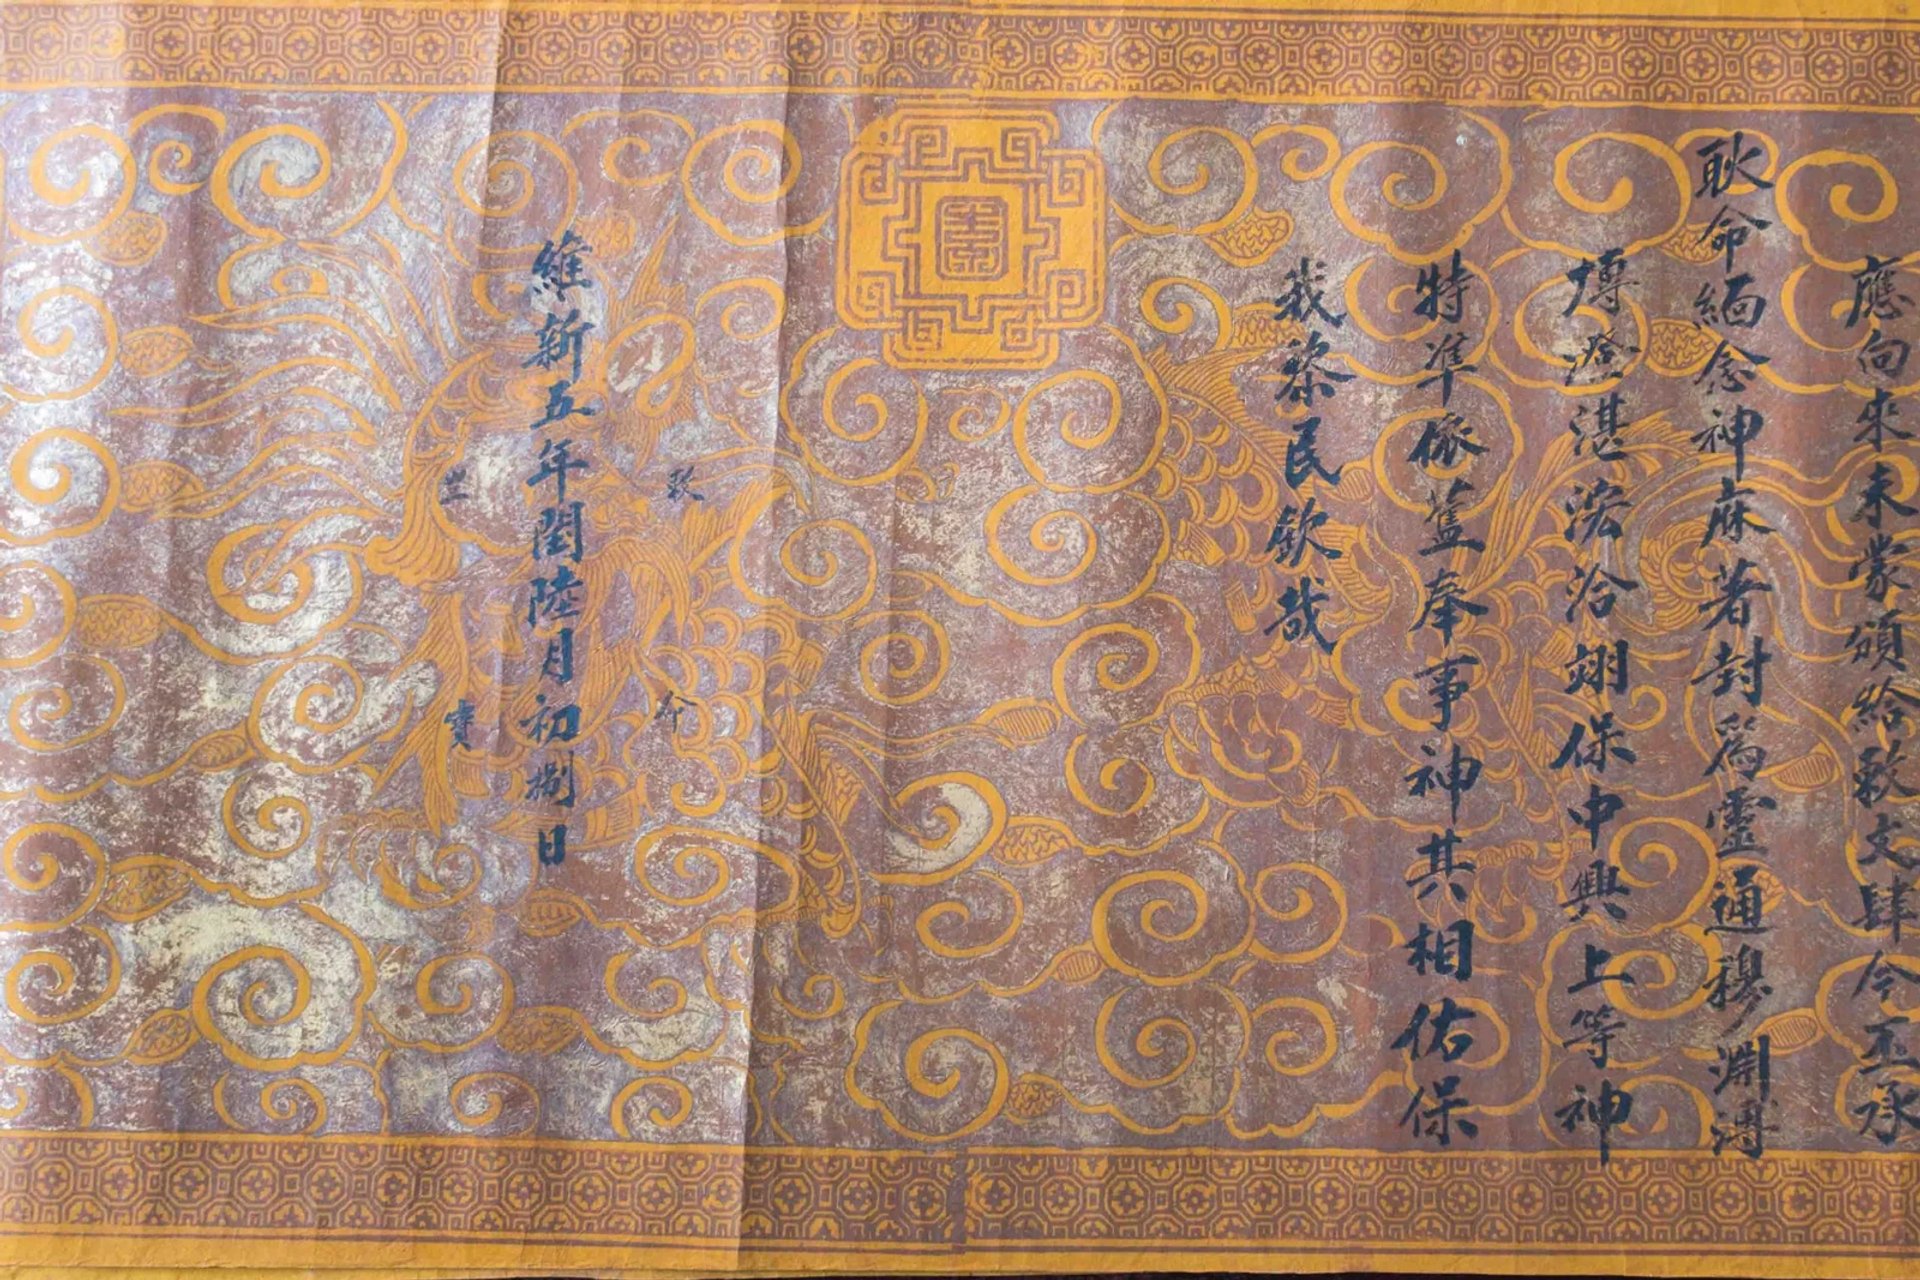 應向來未蒙頒給敕文肆今丕承
耿命緬念神庥著封為靈通穆淵溥
博澄湛浤洽翊保中興上等神
特準依舊奉事神其相佑保
我黎民欽哉
敕命
維新五年閏陸月初捌日
之寶